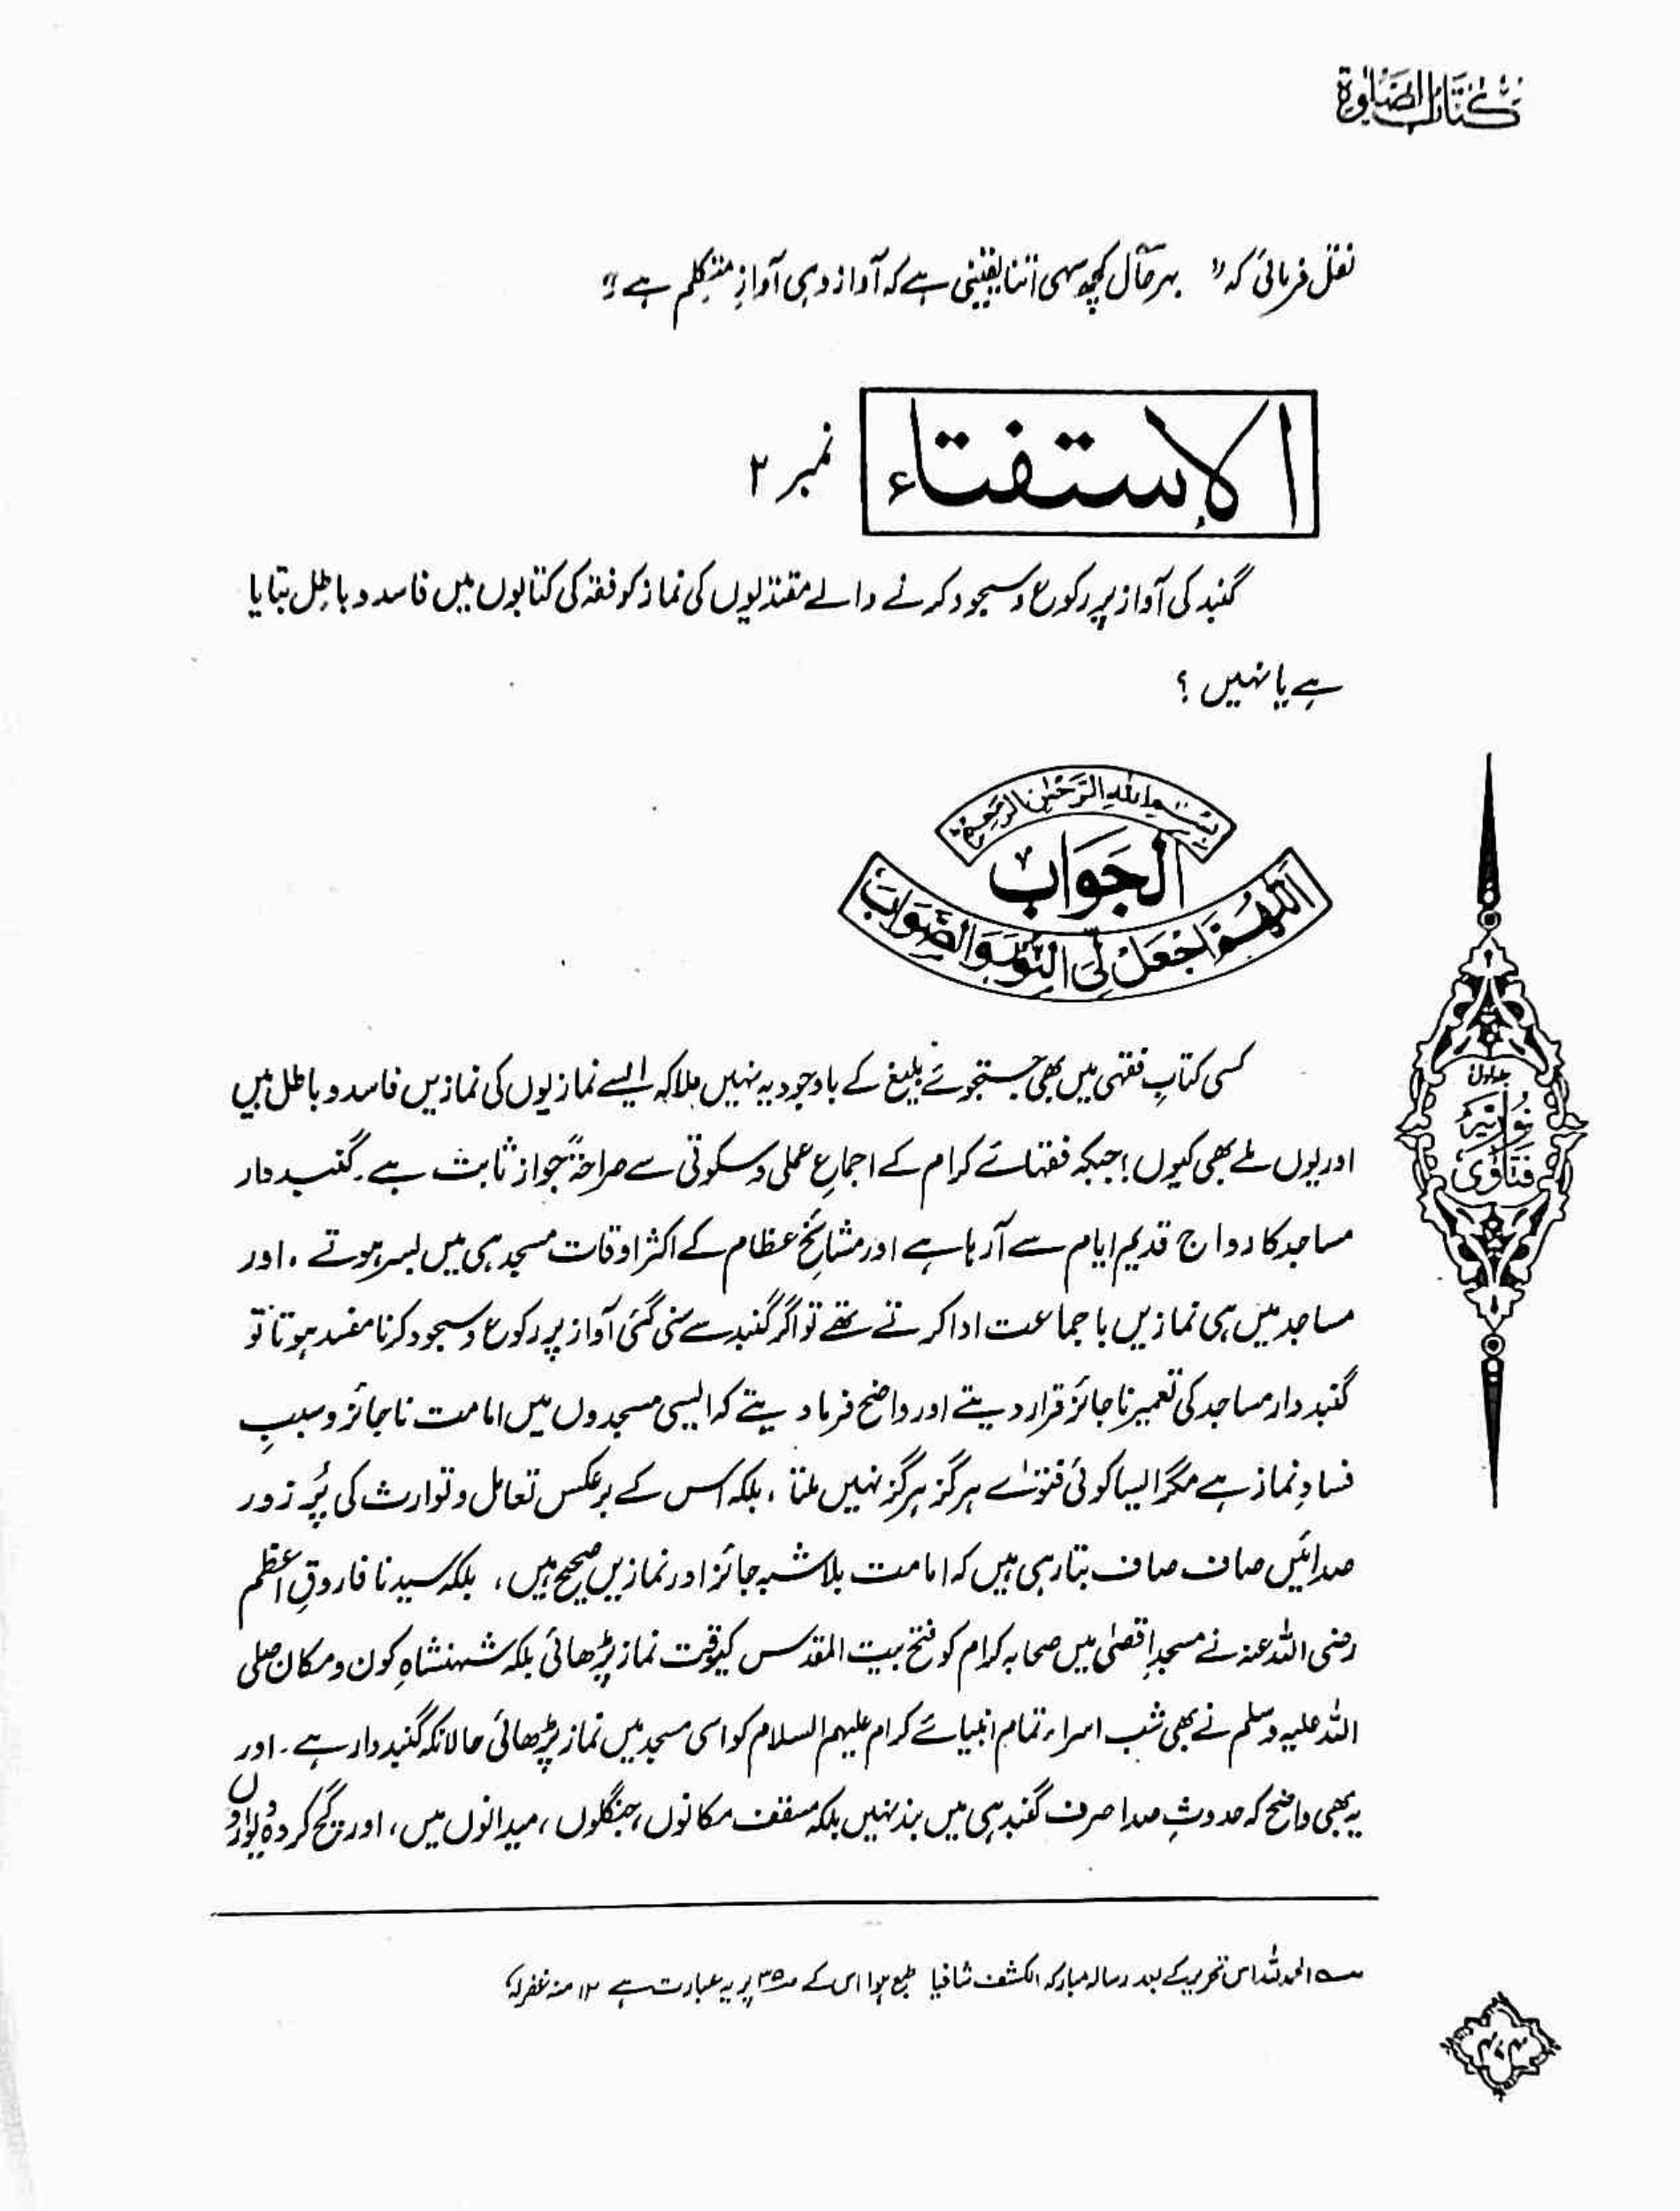 کتاب الصلوٰة
نقل فرمائی کہ " بہرحال کچھ سہی اتنا یقینی ہے کہ آواز وہی آوازِ متکلم ہے "
الاستفتاء نمبر ۲
گنبد کی آواز پر رکوع و سجود کرنے والے مقتدیوں کی نماز کو فقہ کی کتابوں میں فاسد و باطل بتایا
ہے یا نہیں ؟
بِسْمِ اللهِ الرَّحْمٰنِ الرَّحِيْمِ
الجَوَابُ
اللّٰهُمَّ اجْعَلْ لِّيَ النُّوْرَ وَالصَّوَابَ
کسی کتابِ فقہی میں بھی جستجوئے بلیغ کے باوجود یہ نہیں ملا کہ ایسے نمازیوں کی نمازیں فاسد و باطل ہیں
اور یوں ملے بھی کیوں؛ جبکہ فقہائے کرام کے اجماع عملی و سکوتی سے صراحۃً جواز ثابت ہے۔ گنبد دار
مساجد کا رواج قدیم ایام سے آرہا ہے اور مشائخِ عظام کے اکثر اوقات مسجد ہی میں بسر ہوتے ، اور
مساجد میں ہی نمازیں با جماعت ادا کرتے تھے تو اگر گنبد سے سنی گئی آواز پر رکوع و سجود کرنا مفسد ہوتا تو
گنبد دار مساجد کی تعمیر ناجائز قرار دیتے اور واضح فرما دیتے کہ ایسی مسجدوں میں امامت ناجائز و سببِ
فسادِ نماز ہے مگر ایسا کوئی فتویٰ ہرگز ہرگز نہیں ملتا ، بلکہ اس کے برعکس تعامل و توارث کی پُر زور
صدائیں صاف صاف بتا رہی ہیں کہ امامت بلاشبہ جائز اور نمازیں صحیح ہیں، بلکہ سیدنا فاروقِ اعظم
رضی اللہ عنہ نے مسجدِ اقصٰی میں صحابہ کرام کو فتح بیت المقدس کیوقت نماز پڑھائی بلکہ شہنشاہِ کون و مکان صلی
اللہ علیہ وسلم نے بھی شب اسراء تمام انبیائے کرام علیہم السلام کو اسی مسجد میں نماز پڑھائی حالانکہ گنبد دار ہے۔ اور
یہ بھی واضح کہ حدوثِ صدا صرف گنبد ہی میں بند نہیں بلکہ مسقف مکانوں، جنگلوں، میدانوں میں، اور گچ کردہ دیواروں
جلد اول
نُوریّہ
فتاوٰی
ـــہ الحمد للہ اس تحریر کے بعد رسالہ مبارکہ الکشف شافیا طبع ہوا اس کے ص۳۵ پر یہ عبارت ہے ۱۲ منہ غفرلہ